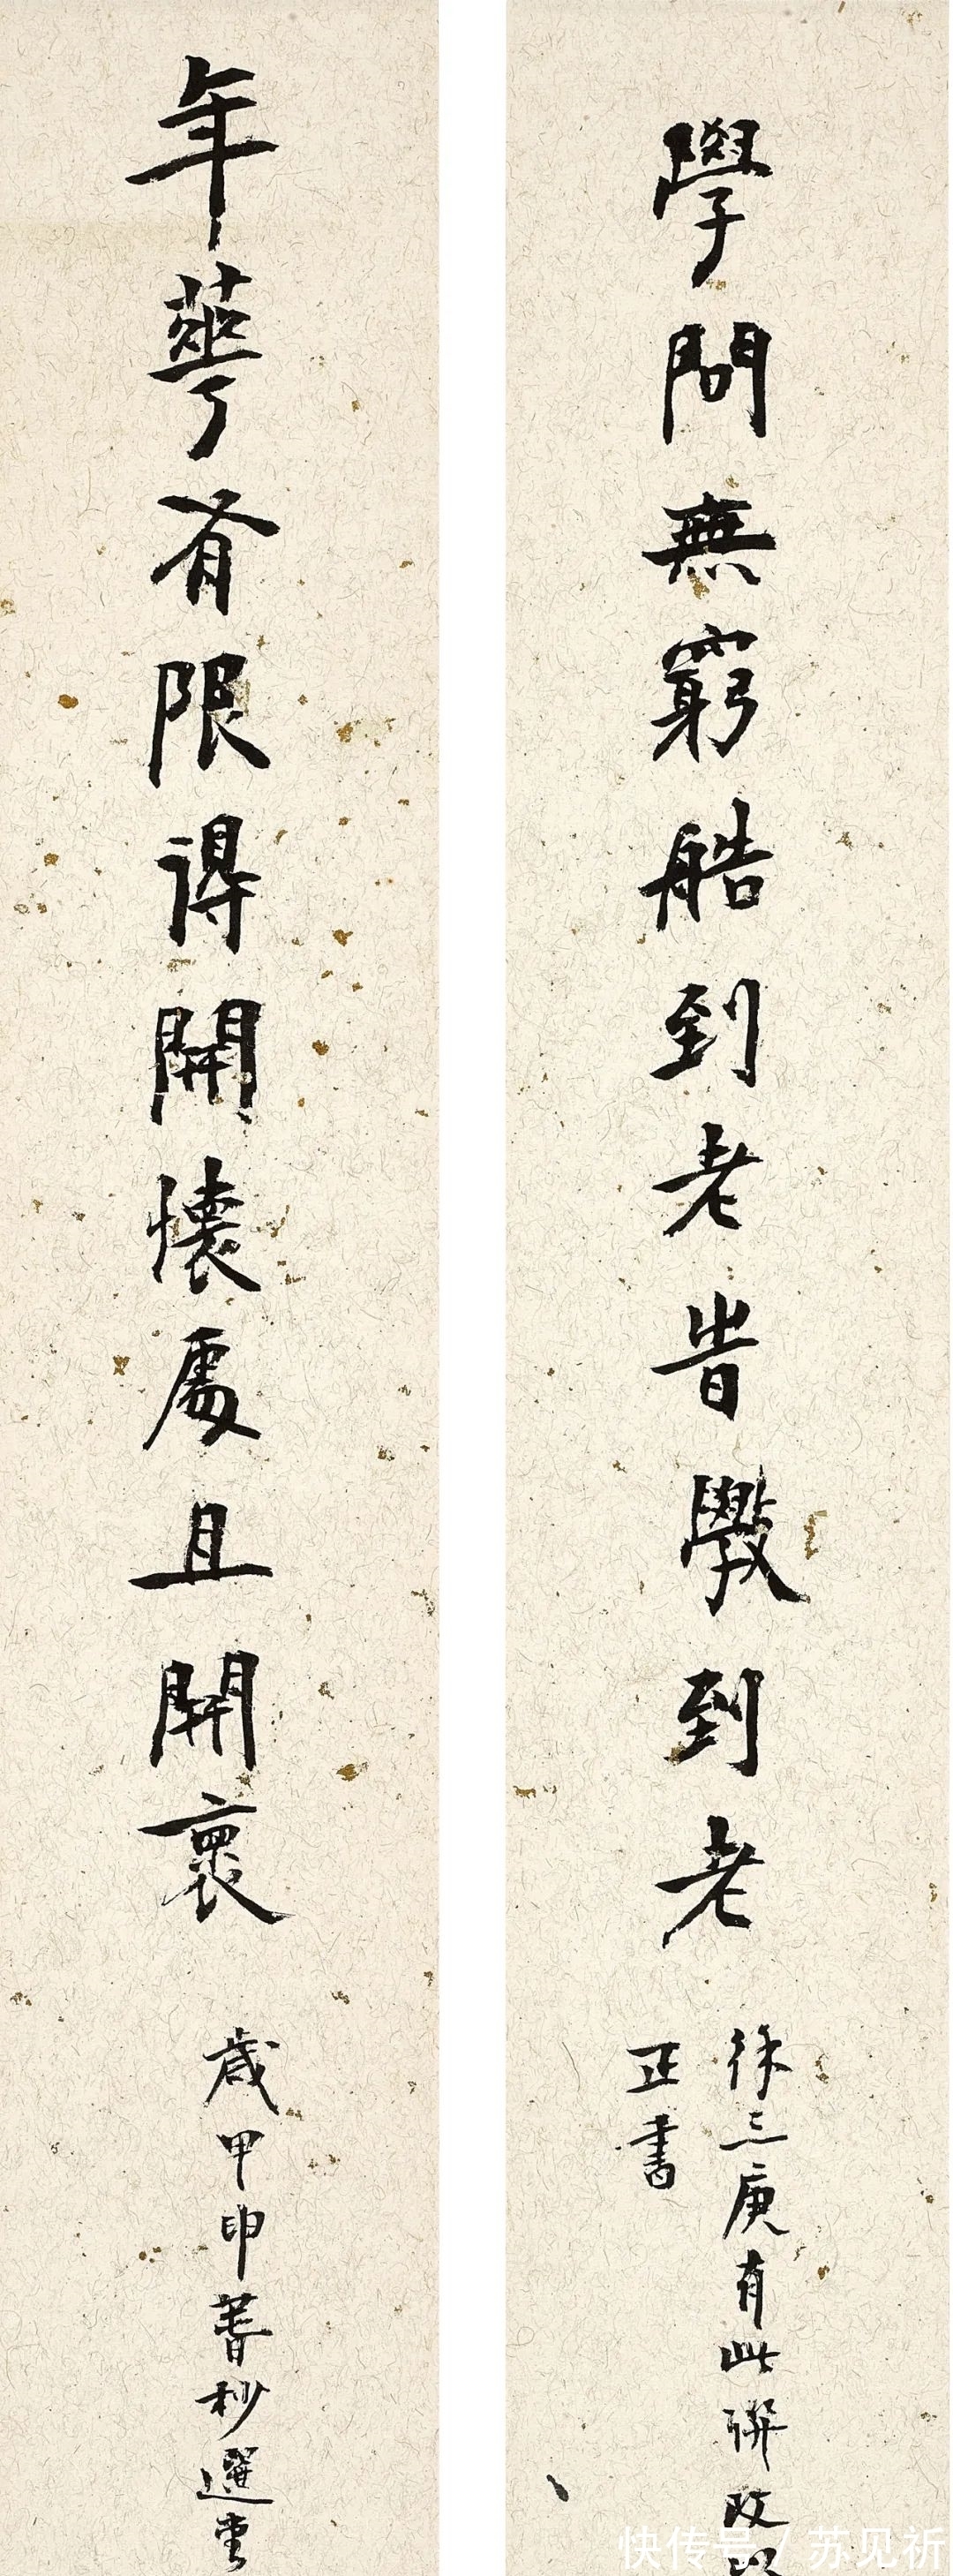 學問無窮艁到老旹斅到老
徐三庚有此聯改以
正書
年華有限得開懷處且開褱
歲甲申暮秒選堂
快传号 / 苏见祈